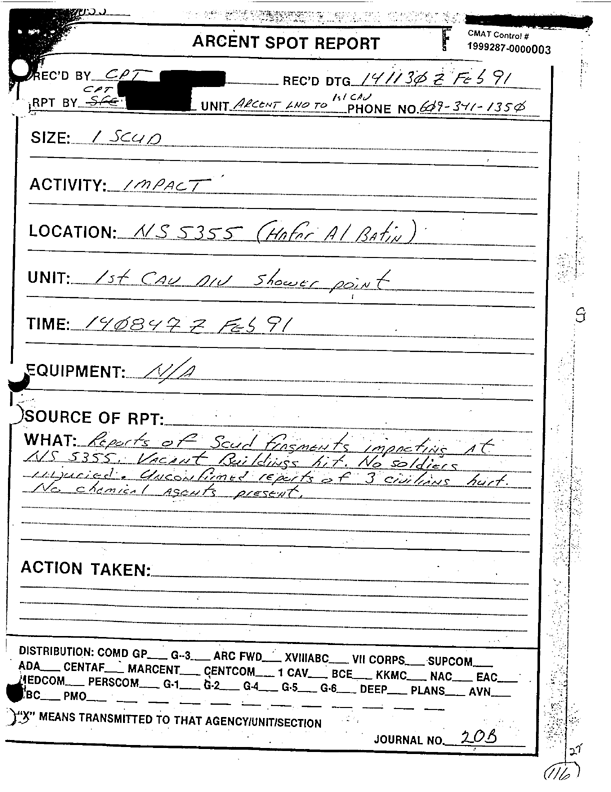 ARCENT SPOT REPORT
CMAT Control #
1999287-0000003
REC'D BY CPT REC'D DTG 141130 Z Feb 91
CPT
RPT BY SFC UNIT ARCENT LNO TO 1st CAV PHONE NO. 609-341-1350
SIZE: 1 SCUD
ACTIVITY: IMPACT
LOCATION: NS 5355 (Hafar Al Batin)
UNIT: 1st CAV DIV Shower point
TIME: 140847 Z Feb 91
EQUIPMENT: N/A
SOURCE OF RPT:
WHAT: Reports of Scud fragments impacting At
NS 5355. VACANT Buildings hit. No soldiers
injuried. Unconfirmed reports of 3 civilians hurt.
No chemical agents present.
ACTION TAKEN:
DISTRIBUTION: COMD GP___ G-3___ ARC FWD___ XVIIIABC___ VII CORPS___ SUPCOM___
ADA___ CENTAF___ MARCENT___ CENTCOM___ 1 CAV___ BCE___ KKMC___ NAC___ EAC___
MEDCOM___ PERSCOM___ G-1___ G-2___ G-4___ G-5___ G-6___ DEEP___ PLANS___ AVN___
NBC___ PMO___
"X" MEANS TRANSMITTED TO THAT AGENCY/UNIT/SECTION
JOURNAL NO. 20B
116